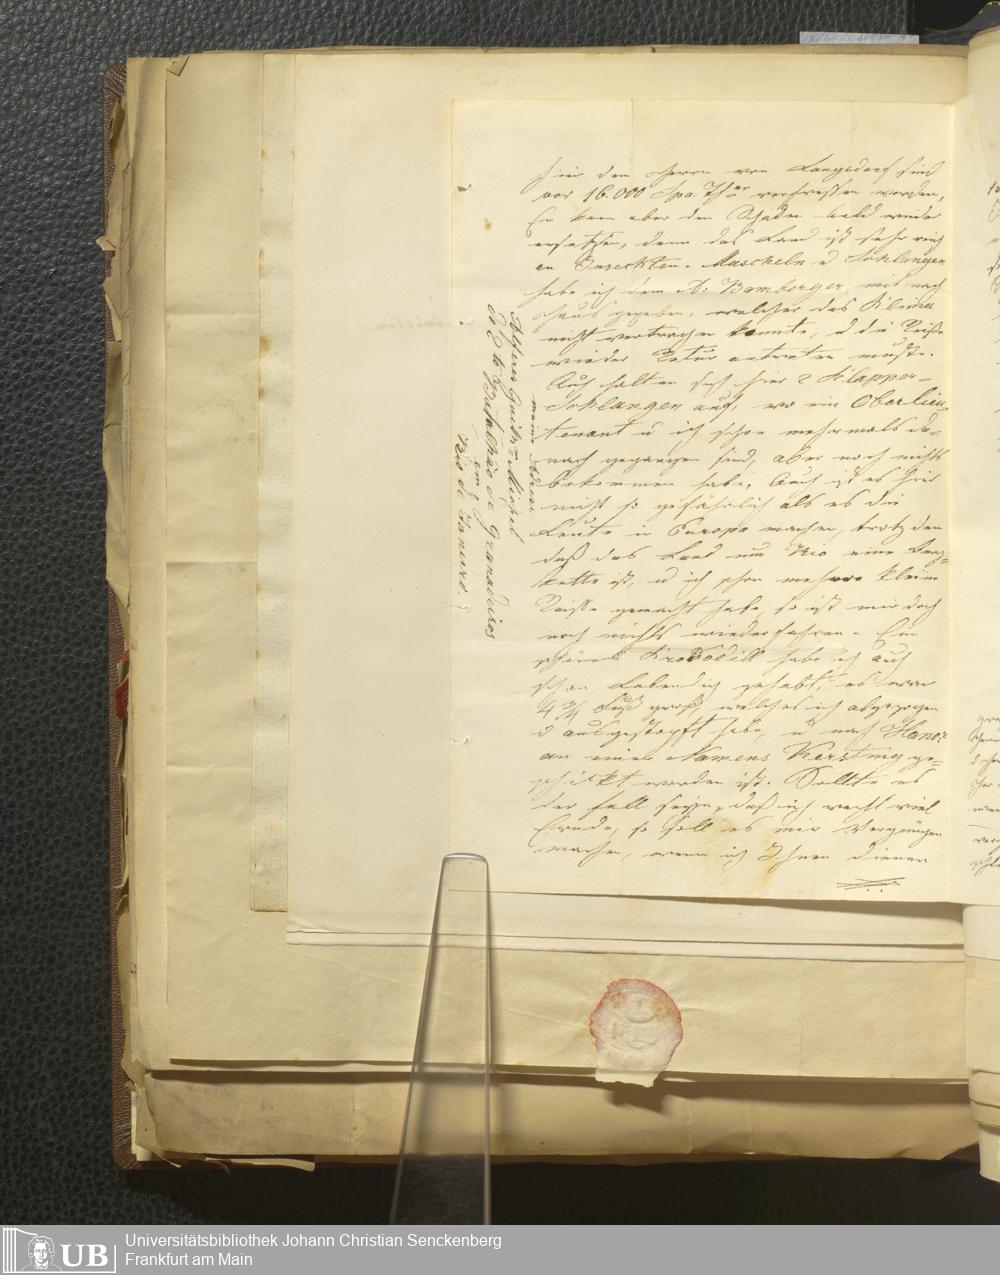 hier dem Herrn von Langsdorf sind
vor 16.000 Spa: Thlr verfressen worden,
Er kann aber den Schaden bald wieder
ersetzen, denn das Land ist sehr reich
an Inseckten. Muscheln u Schlangen
habe ich dem A: Bamberger mit nach
Haus gegeben, welcher das Klima
nicht vertragen konnte, u die Reise
wieder Retur antreten mußte.
Auch halten sich hier 2 Klapper-
Schlangen auf, wo ein Oberlieu-
tenant u ich schon mehrmals da-
nach gegangen sind, aber noch nichts
bekommen habe. Auch ist es hier
nicht so gefährlich als es die
Leute in Europa machen, trotz dem
daß das Land um Rio eine Berg-
kette ist, u ich schon mehrere kleine
Reisse gemacht habe, so ist mir doch
noch nichts wiederfahren. Ein
schönes Krokodill habe ich auch
schon Lebendig gehabt, es war
4 3/4 Fuß groß, welches ich abgezogen
u ausgestopft habe, u nach Hano:
an einen Namens Kersting ge-
schickt worden ist. Sollte es
der fall seyn, daß ich recht viel
finde, so soll es mir Vergnügen
machen, wenn ich Ihnen dienen
meine Adresse
Alferes Guilh: Michel
do 2to Batalhão de Granadeiros
em
Rio de Janeiro.
UB
Universitätsbibliothek Johann Christian Senckenberg
Frankfurt am Main